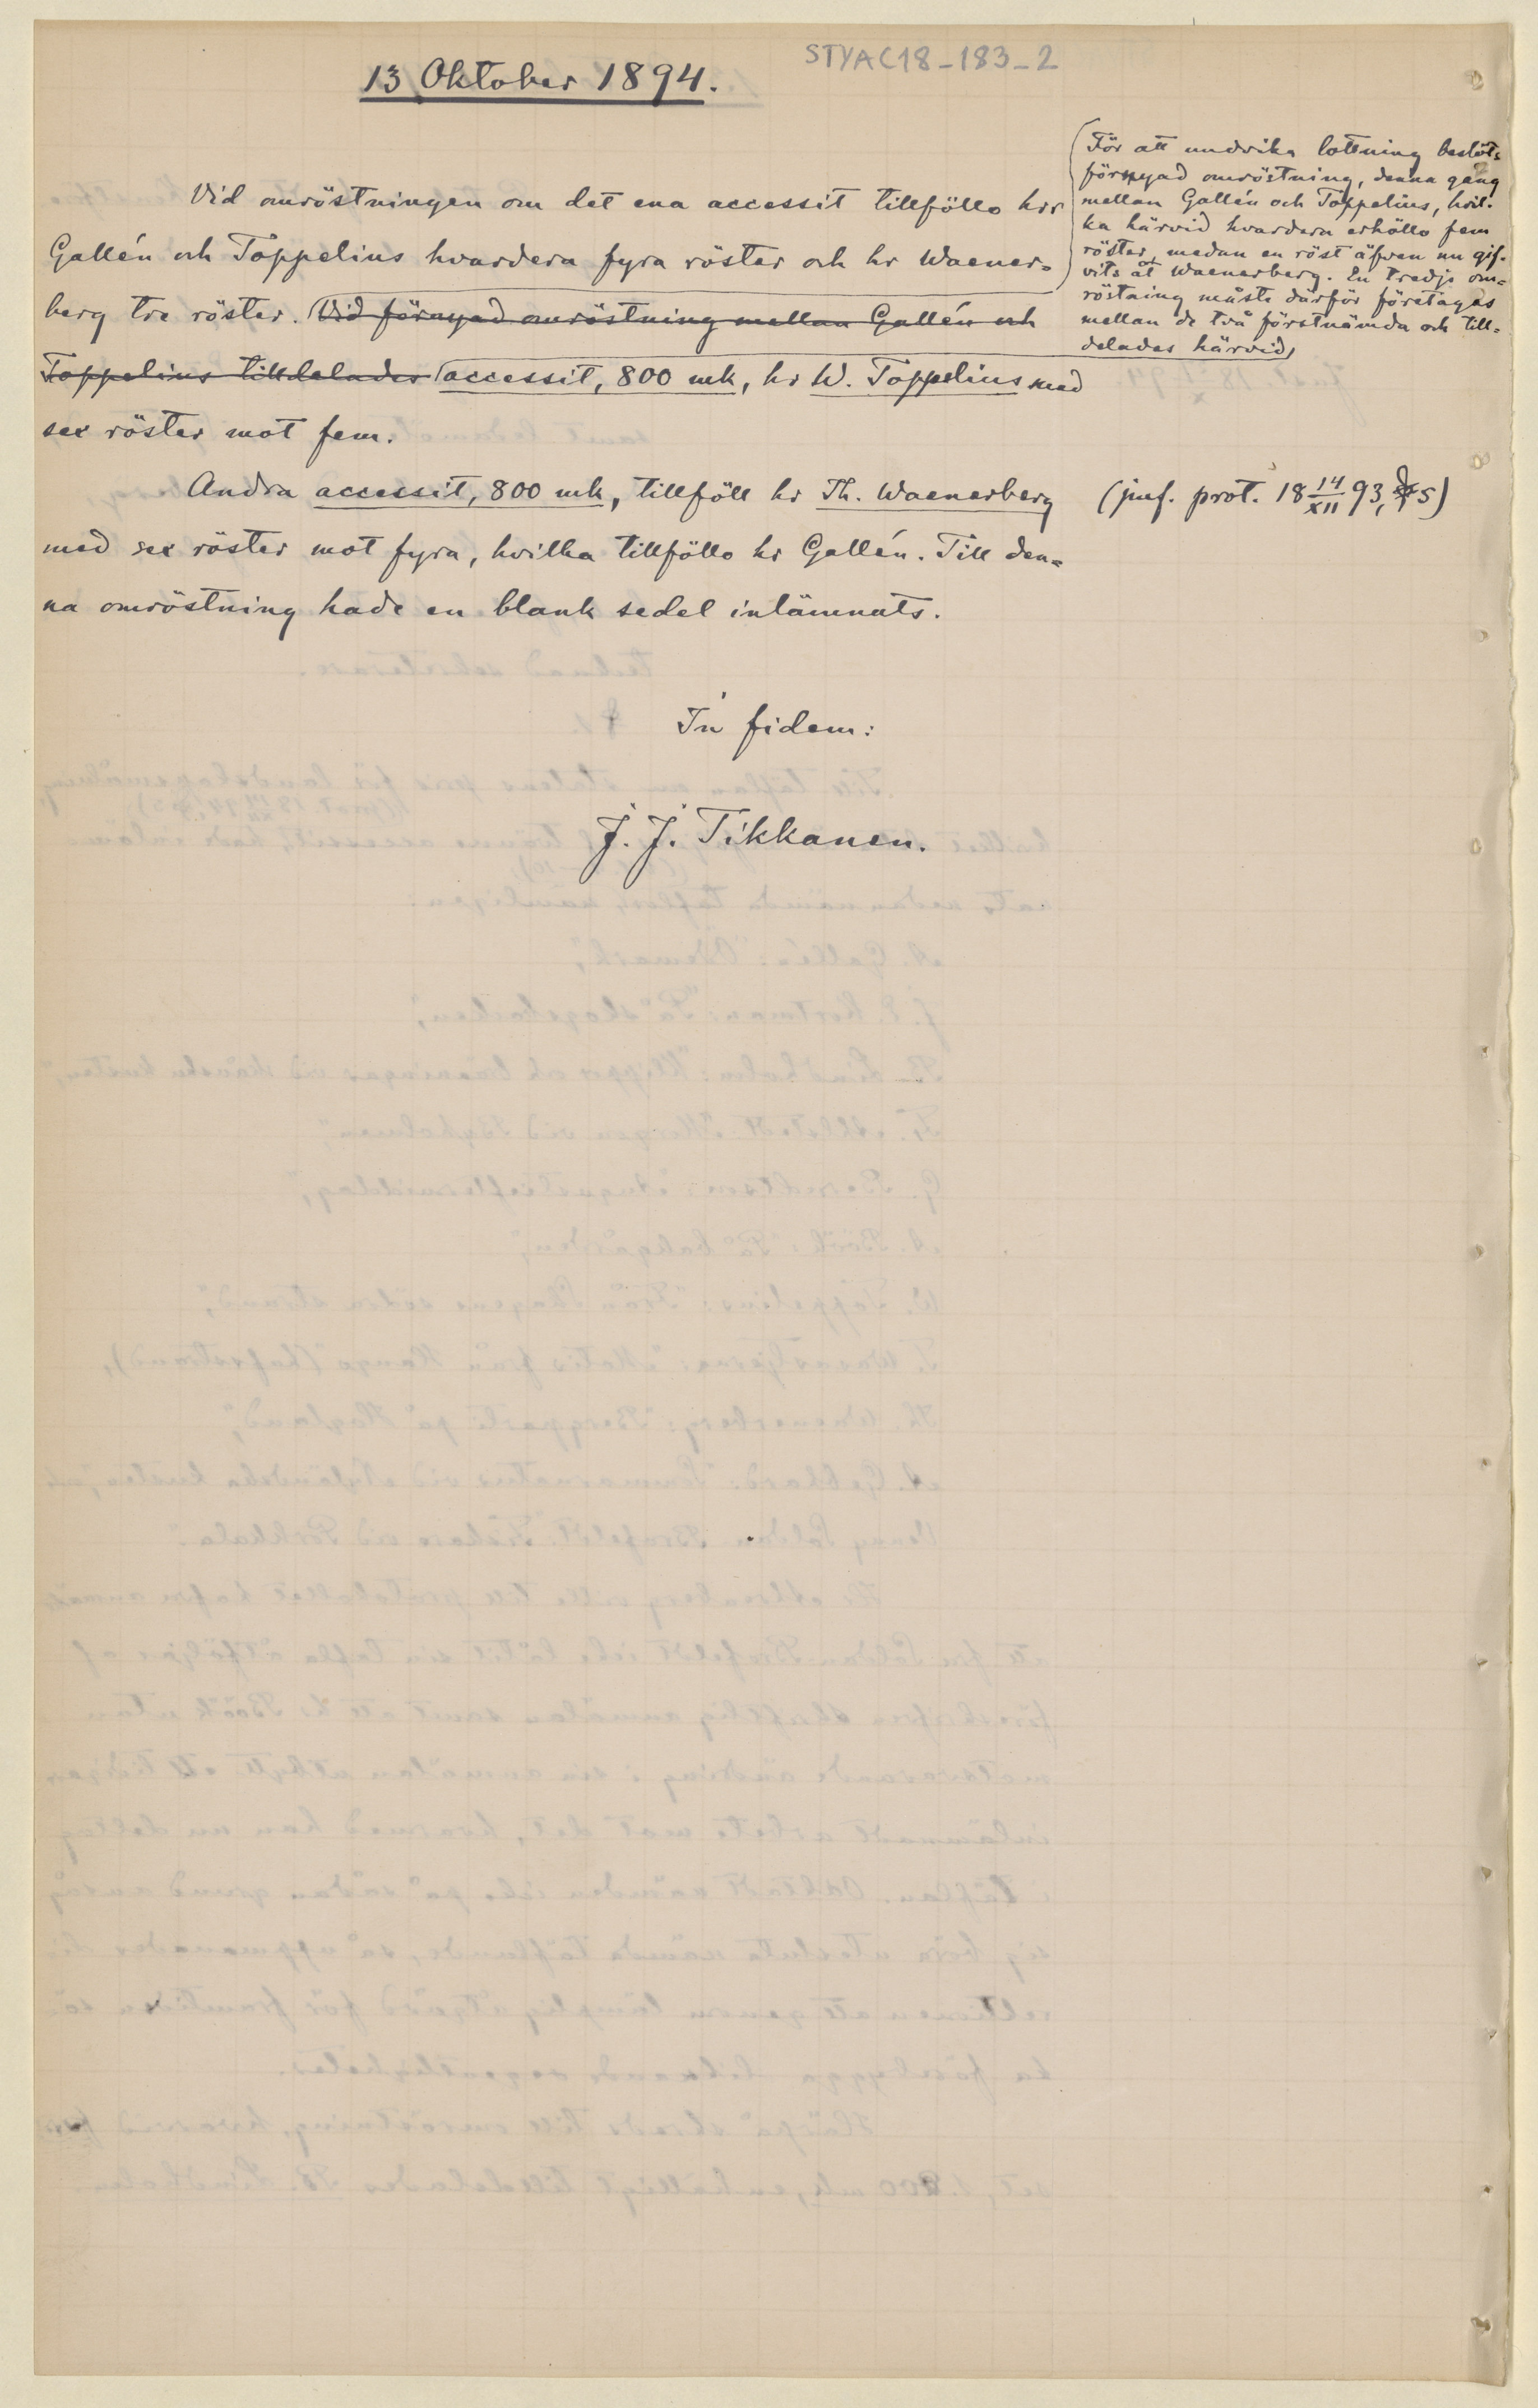 STYAC18-183-2
13 Oktober 1894.
Vid omröstningen om det ena accessit tillföllo hrr
Gallén och Toppelius hvardera fyra röster och hr Waener-
berg tre röster. Vid förnyad omröstning mellan Gallén och
Toppelius tilldelades accessit, 800 mk, hr W. Toppelius med
sex röster mot fem.
(För att undvika lottning beslöts
förnyad omröstning, denna gång
mellan Gallén och Toppelius, hvil-
ka härvid hvardera erhöllo fem
röster, medan en röst äfven nu gif-
vits åt Waenerberg. En tredje om-
röstning måste därför företagas
mellan de två förstnämda och till-
delades härvid)
Andra accessit, 800 mk, tillföll hr Th. Waenerberg
(jmf. prot. 18 14/XII 93, § 5)
med sex röster mot fyra, hvilka tillföllo hr Gallén. Till den-
na omröstning hade en blank sedel inlämnats.
In fidem:
J. J. Tikkanen.